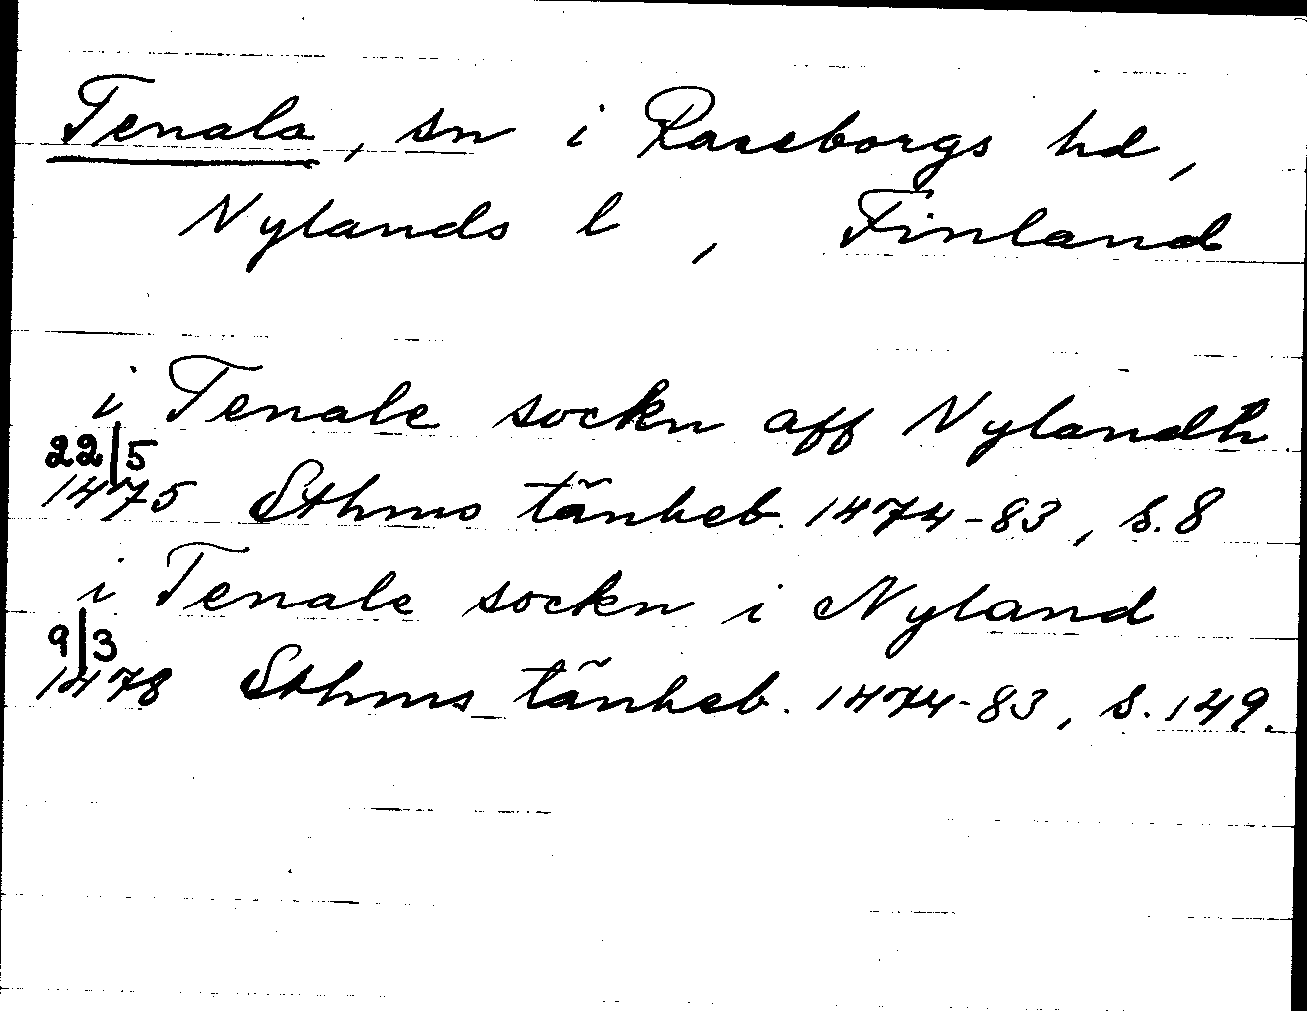 Tenala, sn i Raseborgs hd,
Nylands l, Finland
i Tenale sockn aff Nylandh
22/5
1475 Sthms tänkeb. 1474-83, s. 8
i Tenale sockn i Nyland
9/3
1478 Sthms tänkeb. 1474-83, s. 149.